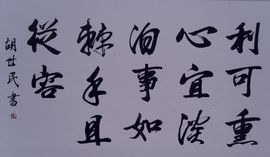 利可熏
心宜淡
泊事如
棘手且
從容
胡世民書